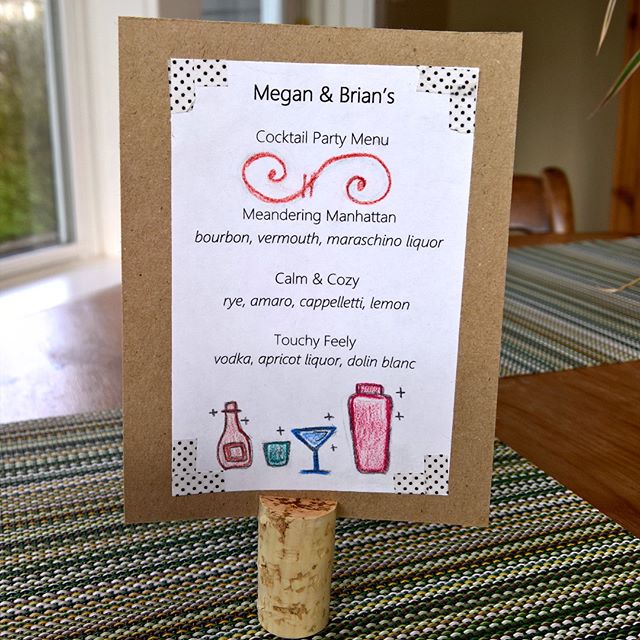 Megan & Brian's
Cocktail Party Menu
Meandering Manhattan
bourbon, vermouth, maraschino liquor
Calm & Cozy
rye, amaro, cappelletti, lemon
Touchy Feely
vodka, apricot liquor, dolin blanc